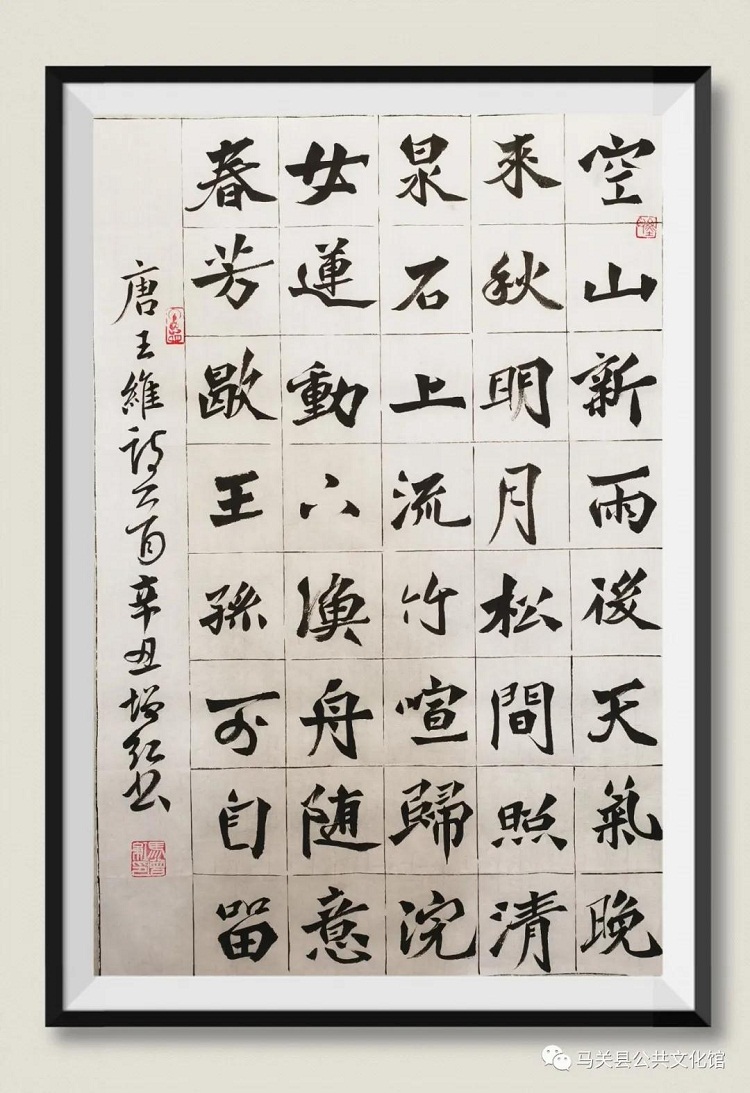 空山新雨後天氣晚
來秋明月松間照清
泉石上流竹喧歸浣
女蓮動下漁舟随意
春芳歇王孫可自留
唐王維詩一首辛丑增红书
马关县公共文化馆